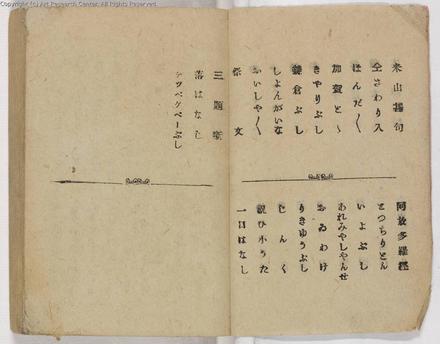 Copyright (c) Art Research Center. All Rights Reserved.
米山甚句
仝さわり入
ほんだ〱
加賀と〱
きやりぶし
鎌倉ぶし
しよんがいな
かいしや〱
祭文
三題噺
落はなし
テケレツペーぶし
阿放多羅經
とつちりとん
いよぶし
あれみやしやんせ
おゐわけ
りきゆうぶし
じんく
祝ひ小うた
一口はなし